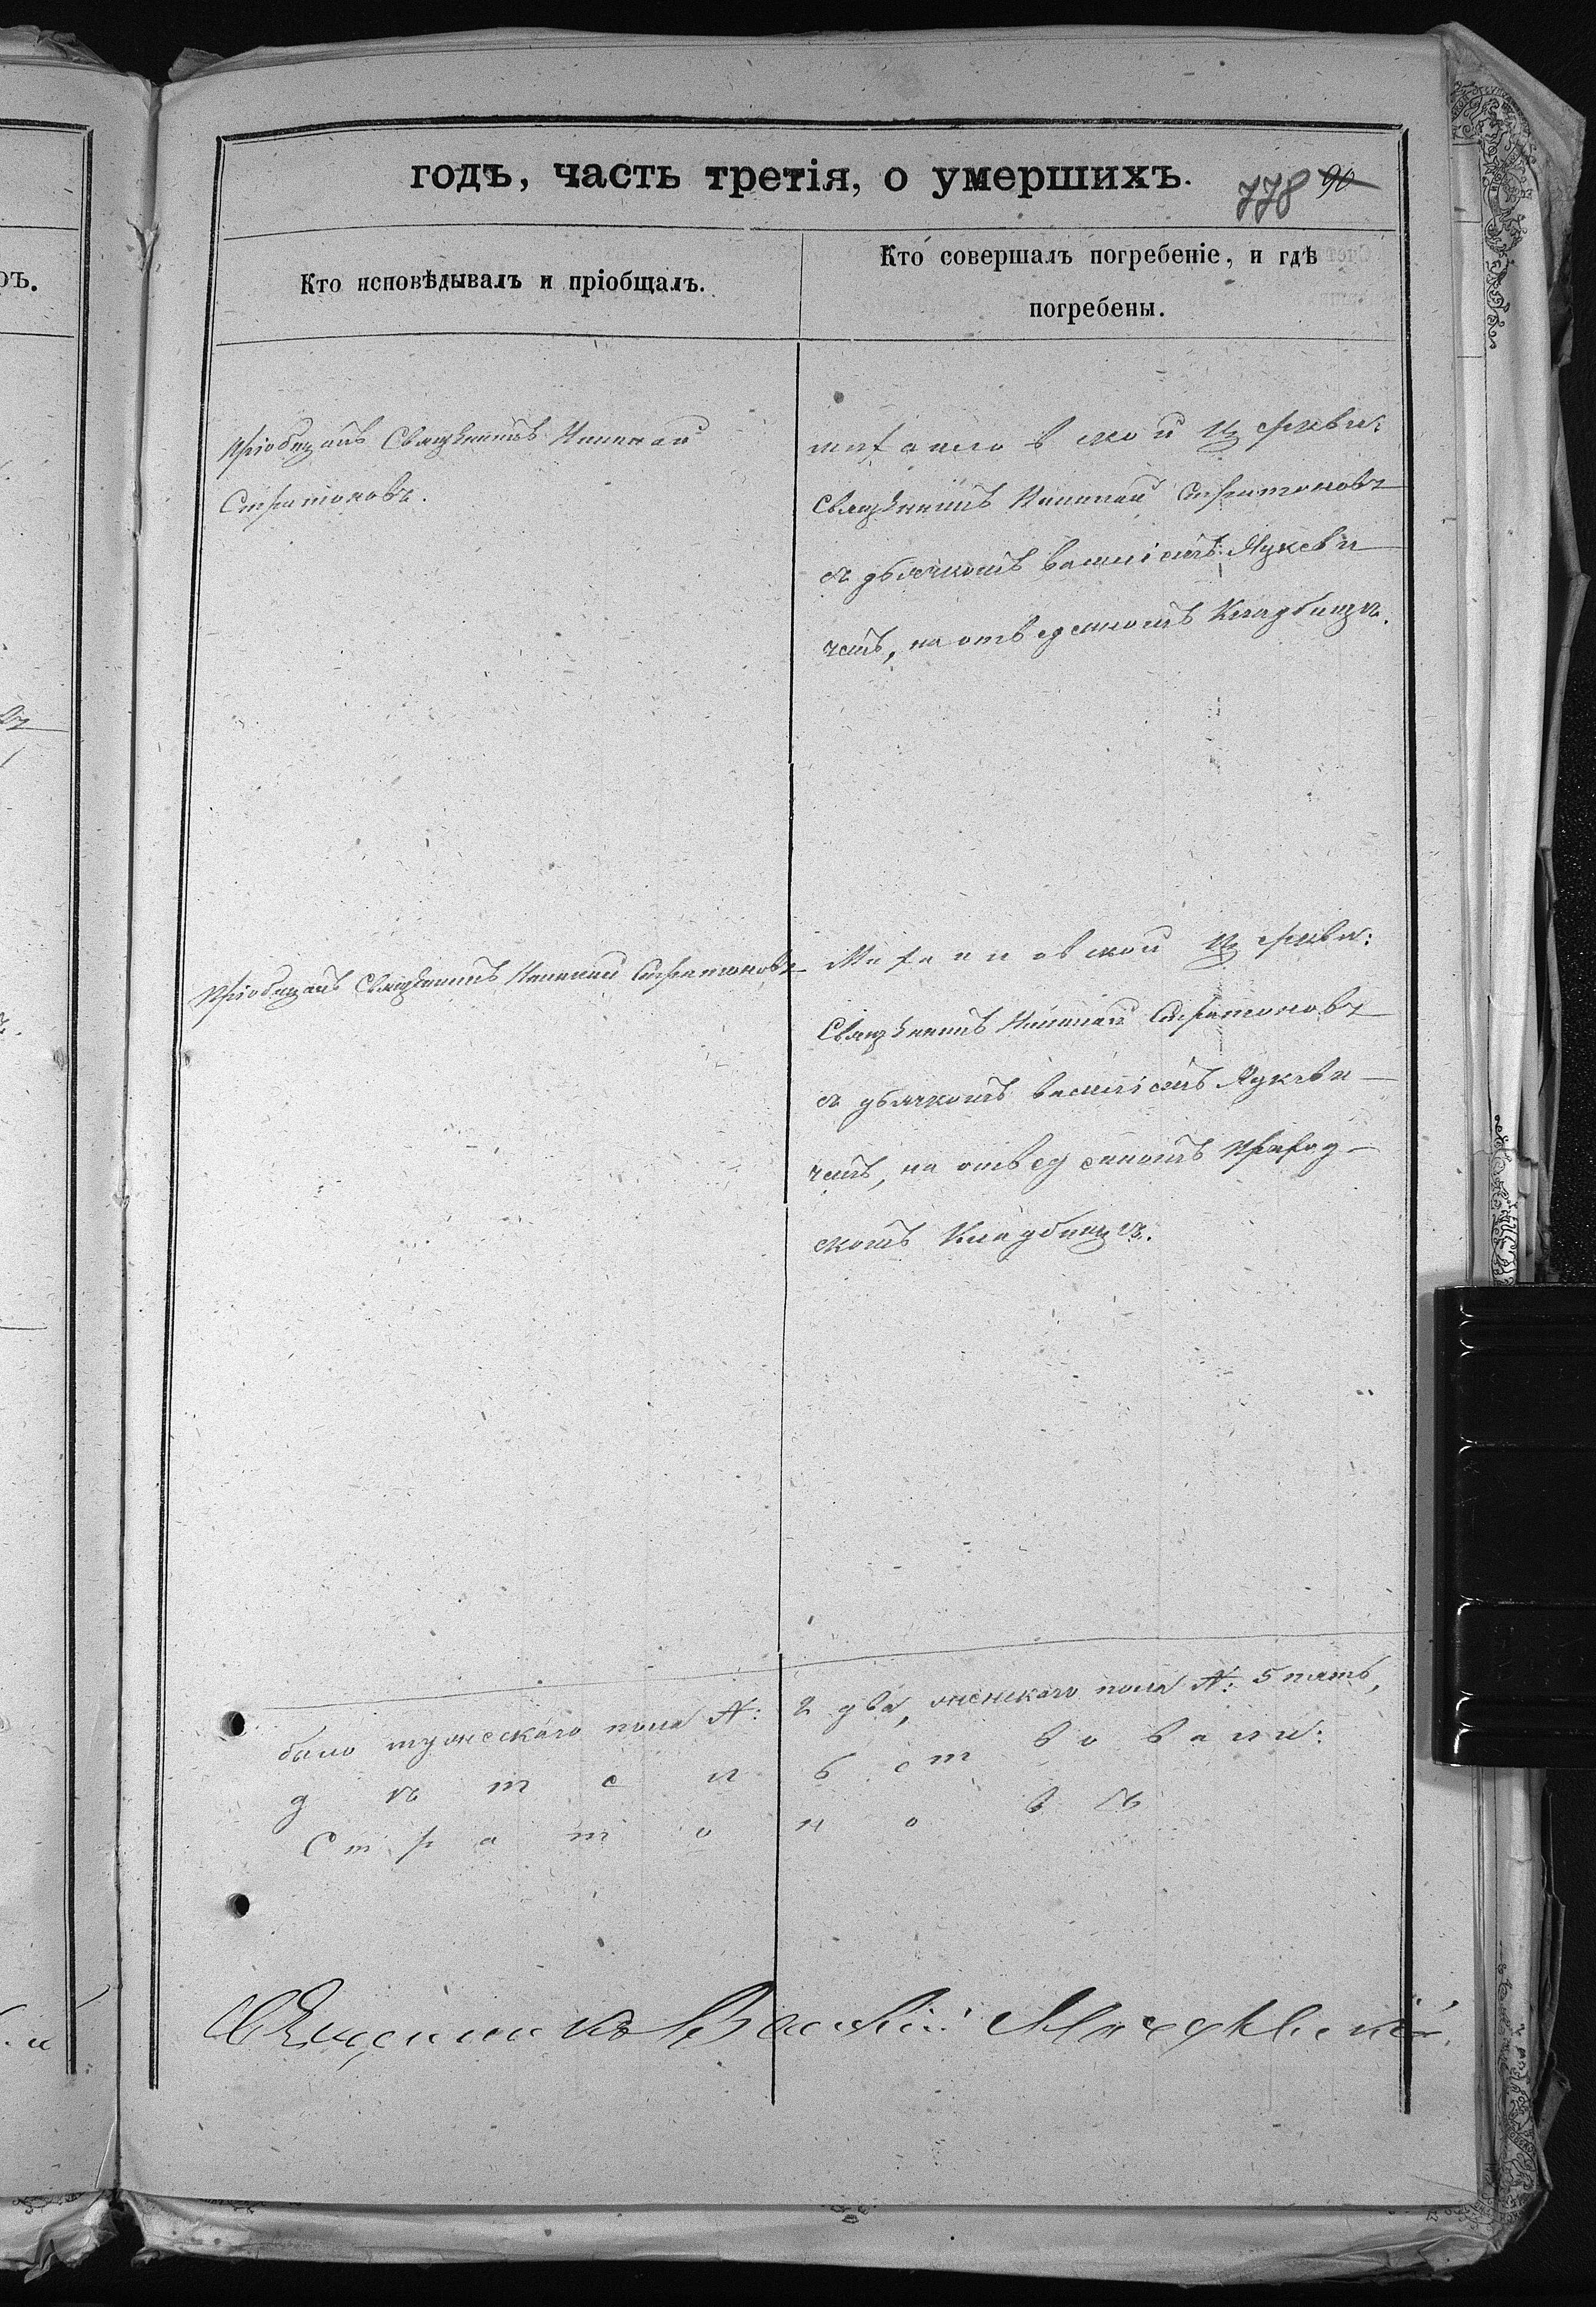 годъ, часть третія, о умершихъ.
778 90
Кто исповѣдывалъ и пріобщалъ.
Кто совершалъ погребеніе, и гдѣ
погребены.
пріобщалъ Священникъ Николай
Стратоновъ.
михайловской церкви:
Священникъ Николай Стратоновъ
съ дьячкомъ Василіемъ Лукеви
чемъ, на отведенномъ Кладбищѣ.
пріобщалъ Священникъ Николай Стратоновъ
Михайловской церкви:
Священникъ Николай Стратоновъ
съ дьячкомъ Василіемъ Лукеви-
чемъ, на отведенномъ приход-
скомъ Кладбищѣ.
было мужескаго пола №: 2 два, женскаго пола №: 5 пять,
Стратоновъ
Священникъ